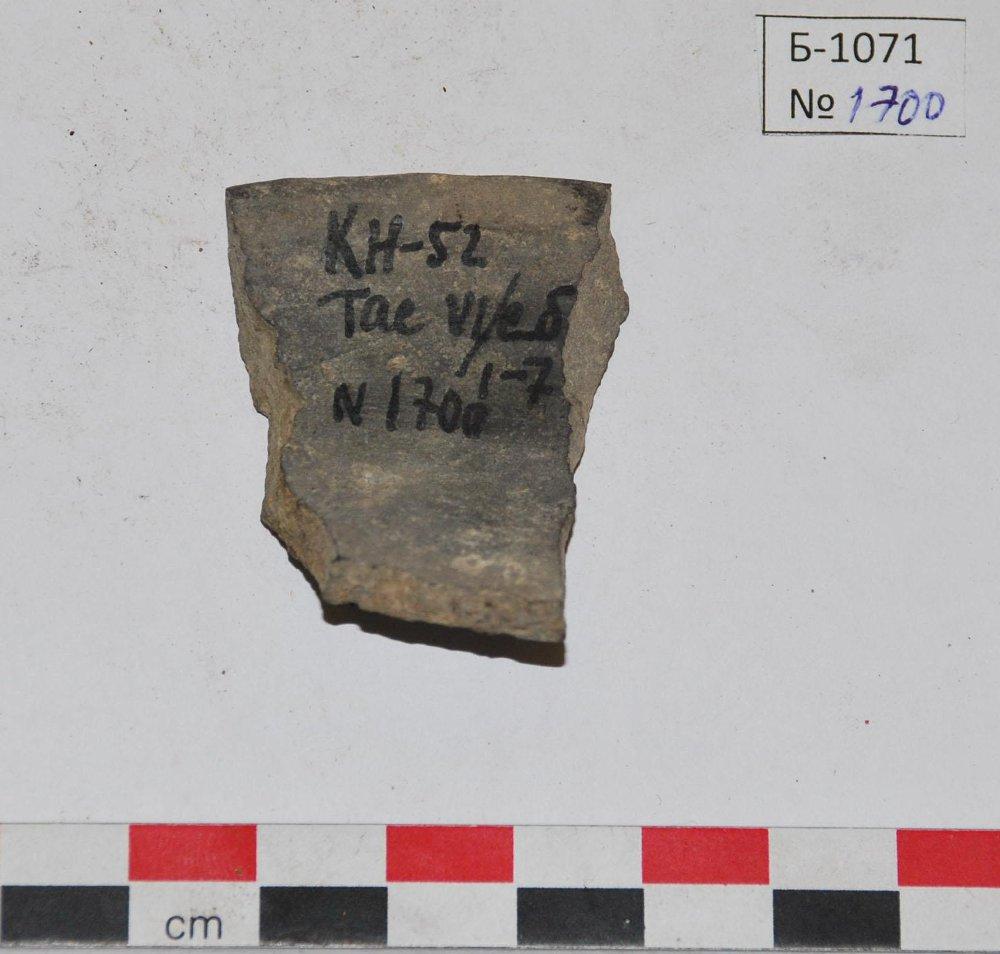 Б-1071
№ 1700
КН-52
Тае VI/е б
1-7
N 1700
cm